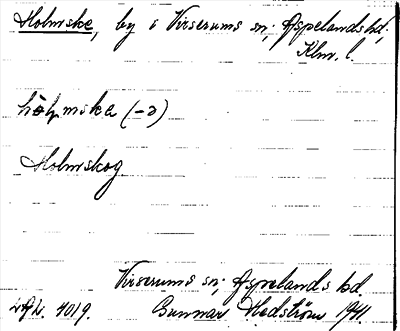 Holmske, by i Virserums sn; Aspelands hd,
Klm. l.
hòlmske (-ə)
Holmskog
Virserums sn; Aspelands hd.
4019. Gunnar Hedström 1941.